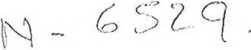 N- 6529